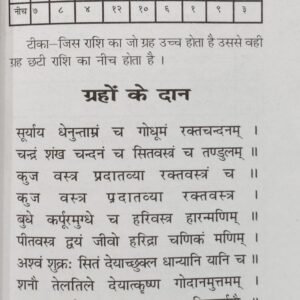 नीच ७ ८ ४ १२ १० ६ १ ९ ३
टीका–जिस राशि का जो ग्रह उच्च होता है उससे वही
ग्रह छटी राशि का नीच होता है ।
ग्रहों के दान
सूर्याय धेनुन्ताम्रं च गोधूमं रक्तचन्दनम् ।
चन्द्रं शंख चन्दनं च सितवस्त्रं च तण्डुलम् ॥
कुज वस्त्र प्रदातव्या रक्तवस्त्रं च ।
कुज वस्त्र प्रदातव्या रक्तवस्त्रम् ।
बुधे कर्पूरमुग्धे च हरिवस्त्र हारन्मणिम् ॥
पीतवस्त्र द्वयं जीवो हरिद्रा चणिकं मणिम् ।
अश्वं शुक्रः सितं देयाच्छुक्ल धान्यानि यानि च ॥
शनौ तेलतिले देयात्कृष्ण गोदानमुत्तमम् ।